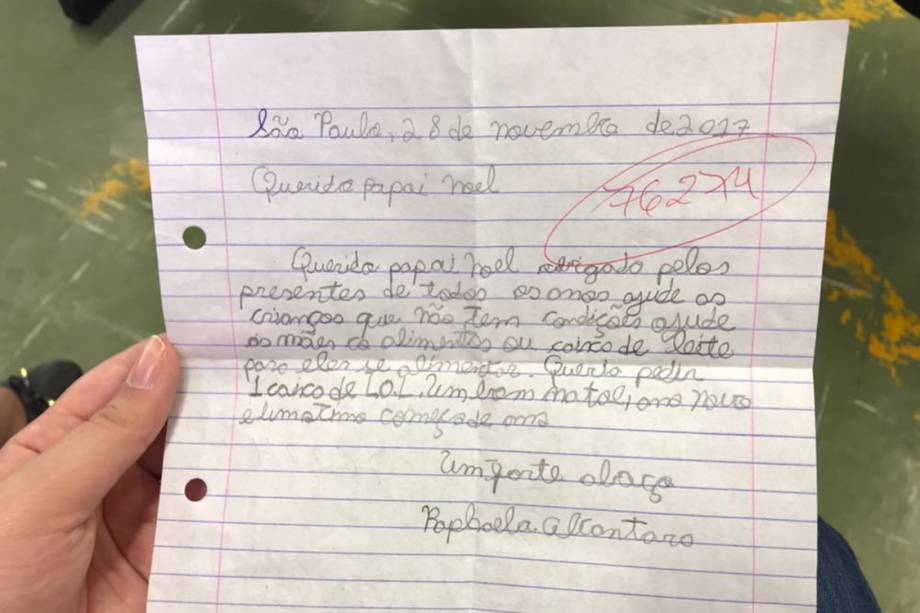 São Paulo, 28 de novembro de 2017
Querido papai noel
76274
Querido papai noel obrigado pelos
presentes de todos os anos ajude as
crianças que não tem condições ajude
as mães da alimentos ou caixa de leite
para eles se alimentar. Queria pedir
1 caixa de L.O.L. um bom natal, ano novo
e um ótimo começo de ano
Um forte abraço
Raphaela Alcantara